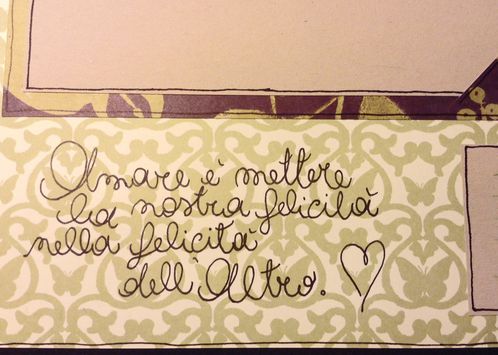 Amare è mettere
la nostra felicità
nella felicità
dell'Altro.